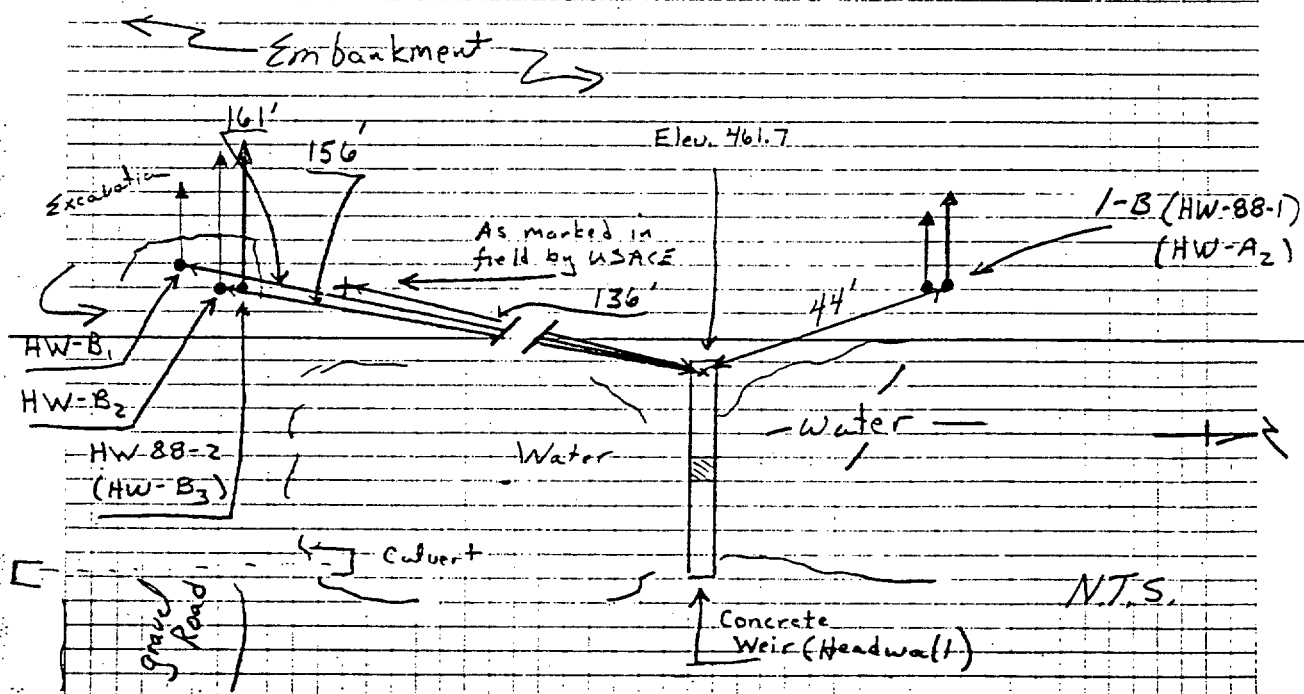 Embankment
161'
156'
Elev. 461.7
Excavation
As marked in
field by USACE
136'
44'
1-B (HW-88-1)
(HW-A2)
HW-B1
HW-B2
HW 88-2
(HW-B3)
Water
Water
Culvert
Gravel
Road
N.T.S.
Concrete
Weir (Headwall)